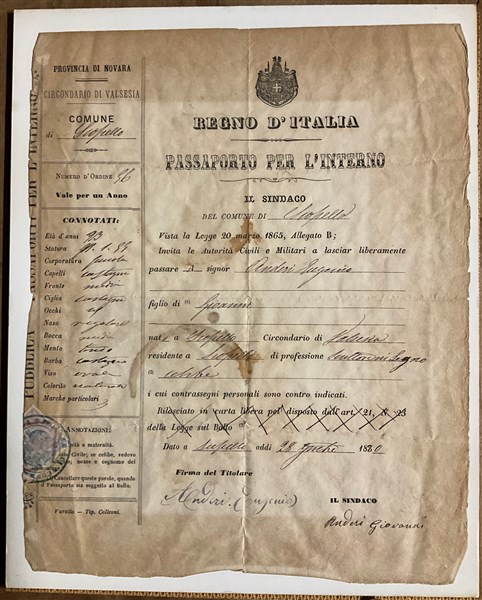 PROVINCIA DI NOVARA
CIRCONDARIO DI VALSESIA
COMUNE
di Scopello
NUMERO D'ORDINE 96
Vale per un Anno
CONNOTATI:
Età d'anni 23
Statura
Corporatura
Capelli castagni
Fronte media
Ciglia castagne
Occhi
Naso regolare
Bocca media
Mento tondo
Barba castagna
Viso ovale
Colorito naturale
Marche particolari
ANNOTAZIONI:
ità e maternità.
Civile; se celibe, vedovo
nome e cognome del
Cancellare queste parole, quando
Passaporto sia soggetto al Bollo.
Varallo - Tip. Colleoni.
REGNO D'ITALIA
PASSAPORTO PER L'INTERNO
IL SINDACO
DEL COMUNE DI Scopello
Vista la Legge 20 marzo 1865, Allegato B;
Invita le Autorità Civili e Militari a lasciar liberamente
passare signor Anderi Eugenio
figlio di Giovanni
nato a Scopello Circondario di Valsesia
residente a Scopello di professione
celibe
i cui contrassegni personali sono contro indicati.
Rilasciato in carta libera per disposto dell'art. 21, N. 23
della Legge sul Bollo
Dato a Scopello addì 28 1880
Firma del Titolare
Anderi Eugenio
IL SINDACO
Anderi Giovanni